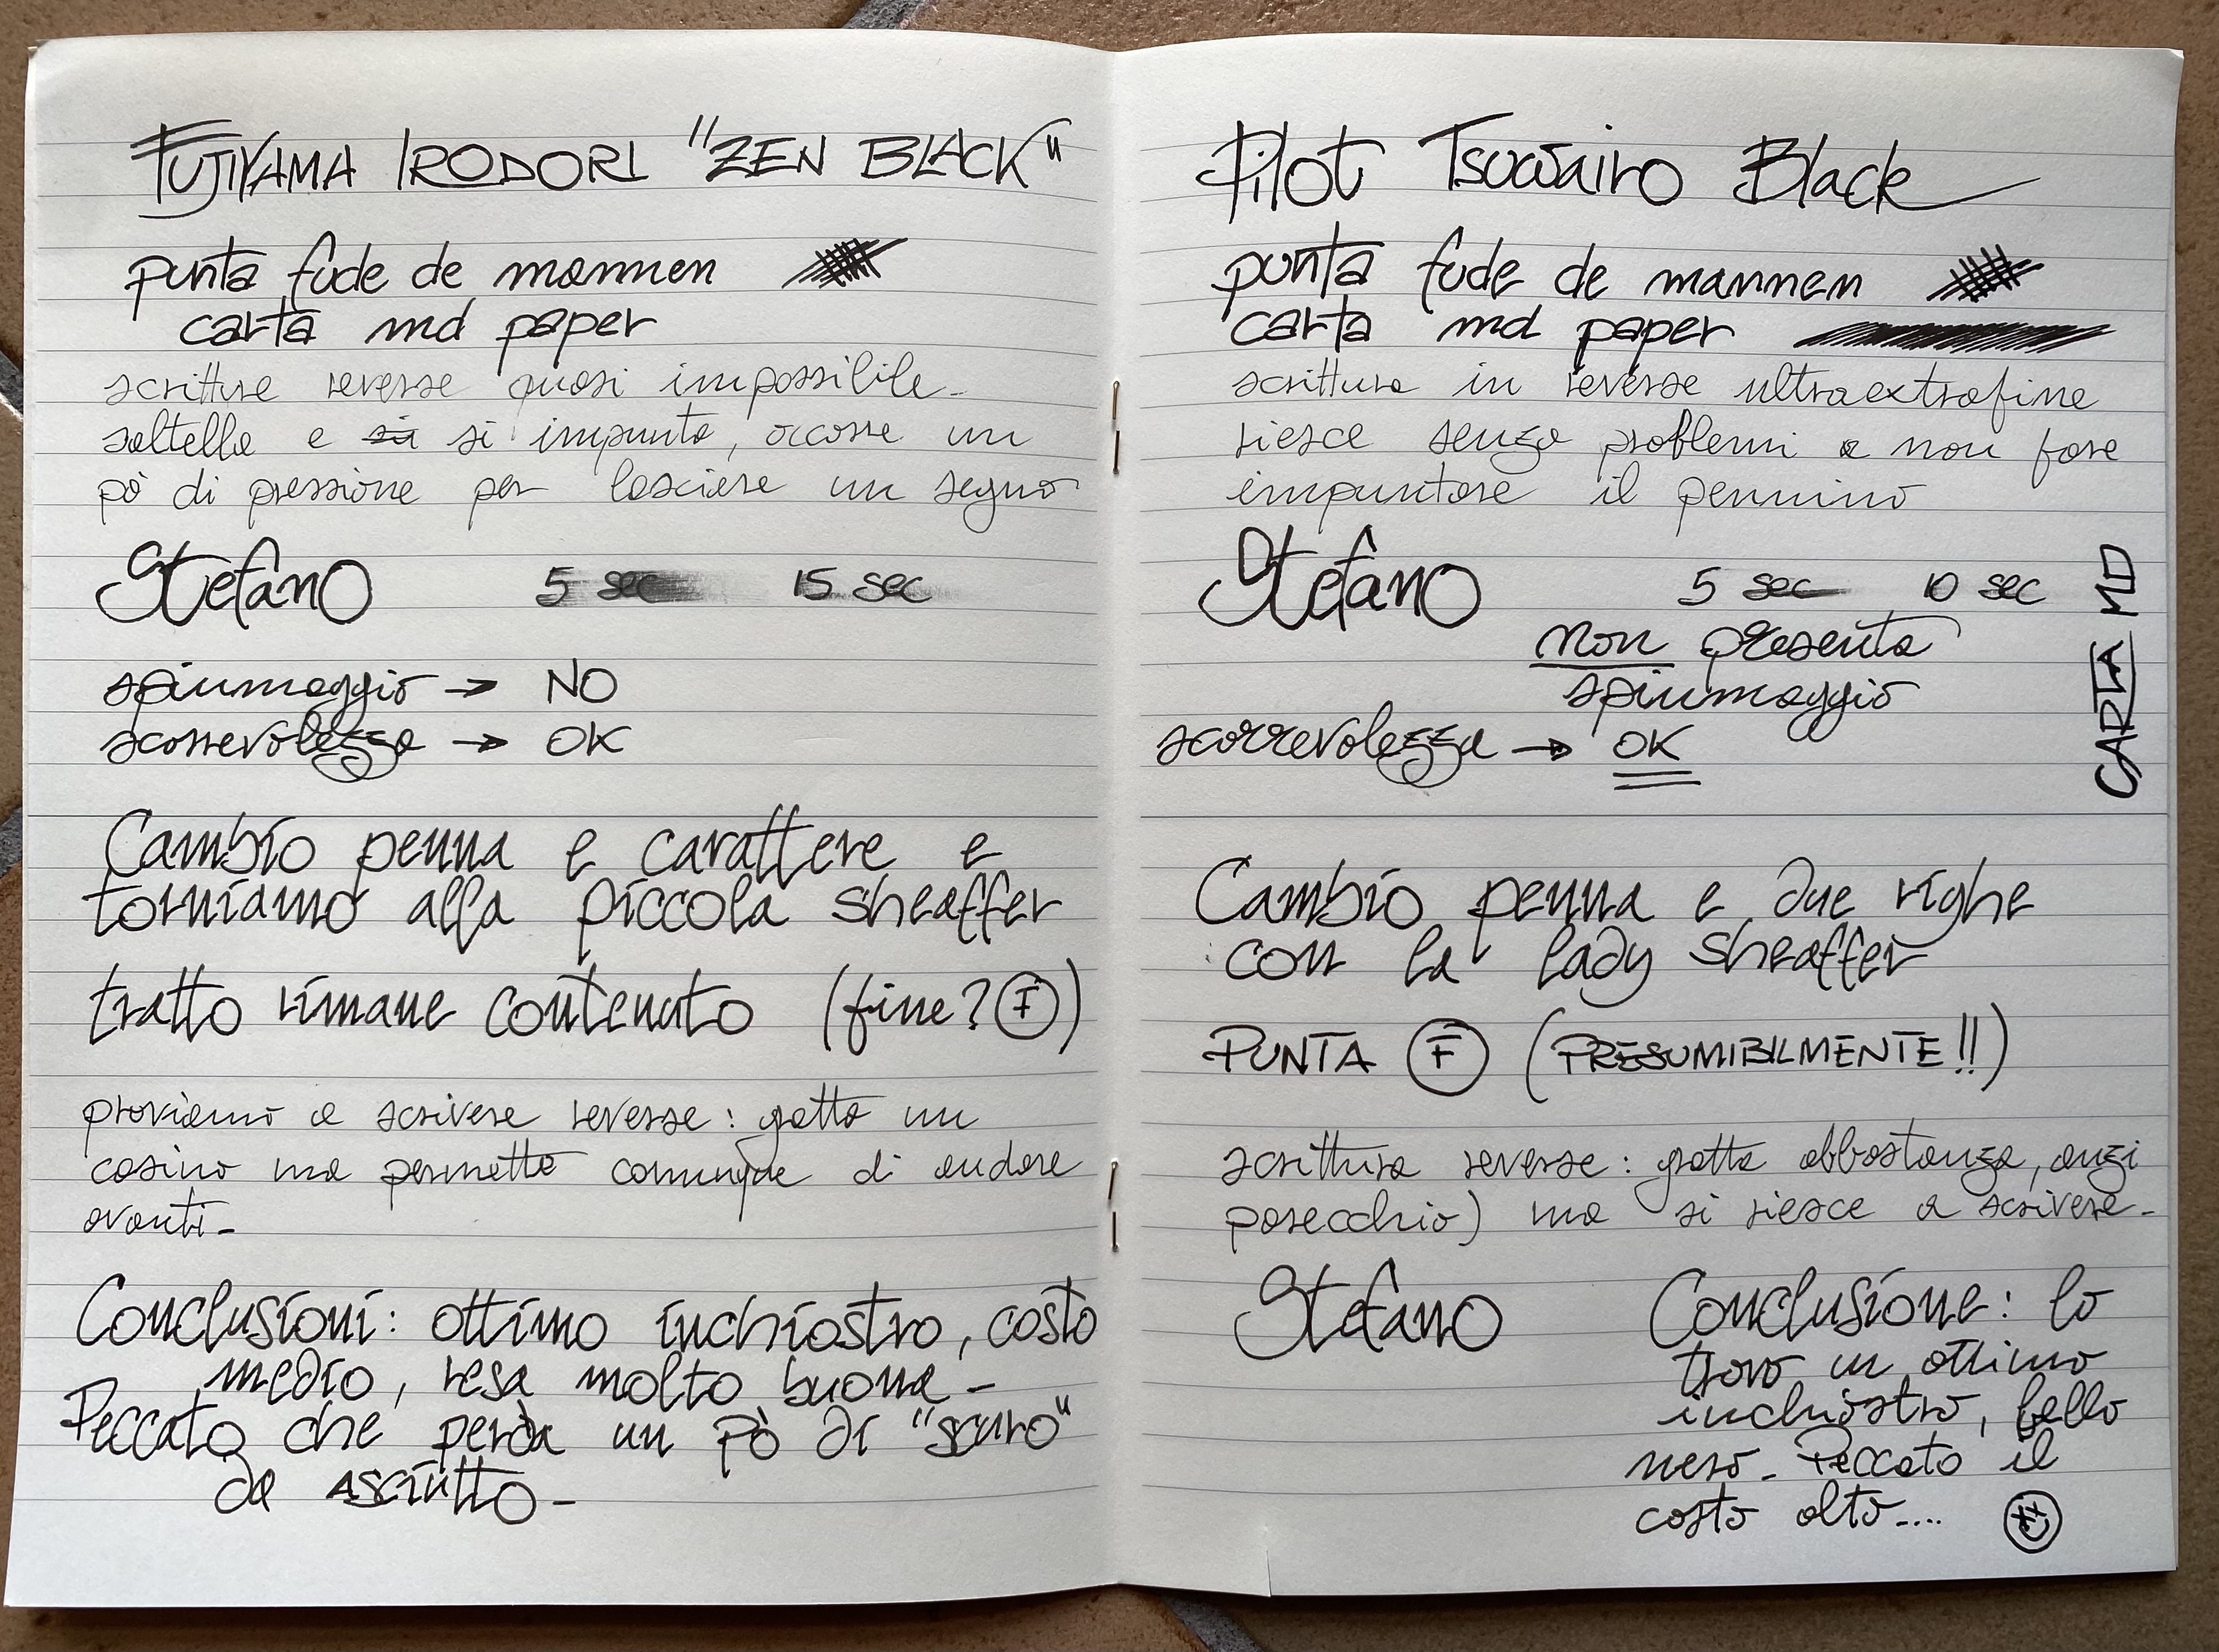 FUJIYAMA IRODORI "ZEN BLACK"
punta fude de mannen
carta md paper
scritture reverse quasi impossibile-
saltella e si si impunta, occorre un
pò di pressione per lasciare un segno
Stefano 5 sec 15 sec
spiumaggio → NO
scorrevolezza → OK
Cambio penna e carattere e
torniamo alla piccola sheaffer
tratto rimane contenuto (fine? F)
proviamo a scrivere reverse: gratta un
casino ma permette comunque di andare
avanti-
Conclusioni: ottimo inchiostro, costo
medio, resa molto buona-
Peccato che perda un pò di "scuro"
da asciutto-
Pilot Tsuwairo Black
punta fude de mannen
carta md paper
scrittura in reverse ultraextrafine
riesce senza problemi a non fare
impuntare il pennino
Stefano 5 sec 10 sec
non presenta
spiumaggio
scorrevolezza → OK
CARTA MD
Cambio penna e due righe
con la lady sheaffer
PUNTA F (PRESUMIBILMENTE!!)
scrittura reverse: gratta abbastanza, anzi
parecchio) ma si riesce a scrivere-
Stefano
Conclusione: lo
trovo un ottimo
inchiostro, bello
nero- Peccato il
costo alto....